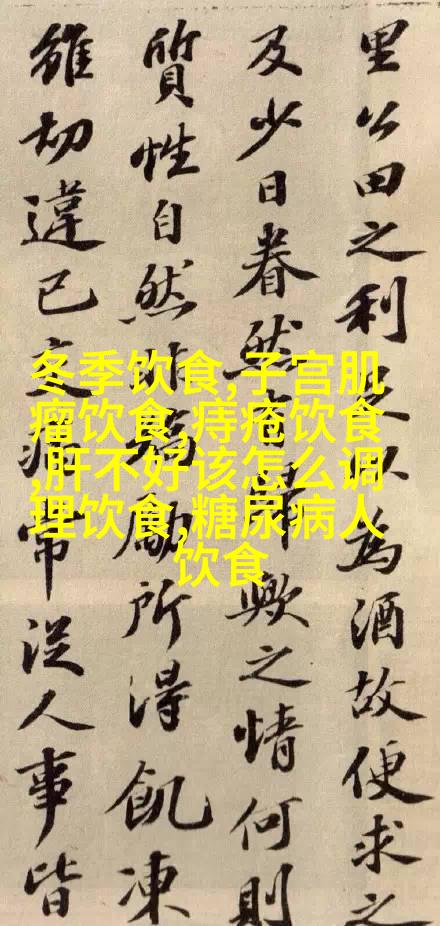 里公田之利足以為酒故便求之
及少日眷然有歸歟之情何則
質性自然非矯勵所得飢凍
雖切違已交病常從人事皆
冬季饮食,子宫肌
瘤饮食,痔疮饮食
,肝不好该怎么调
理饮食,糖尿病人
饮食